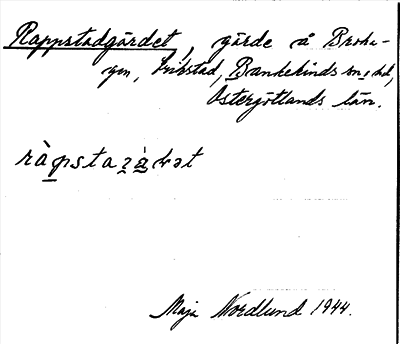 Rappstadgärdet, gärde å Broke-
gen, Vribstad, Bankekinds sn, hd,
Östergötlands län.
ràpstaʒà
Maja Nordlund 1944.